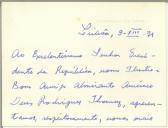 Lisboa, 9-XII-71
Ao Excelentíssimo Senhor Presi-
dente da República, nosso Ilustre
Bom Amigo Almirante Américo
Deus Rodrigues Thomaz, apresen-
tamos, respeitosamente, nossos mais